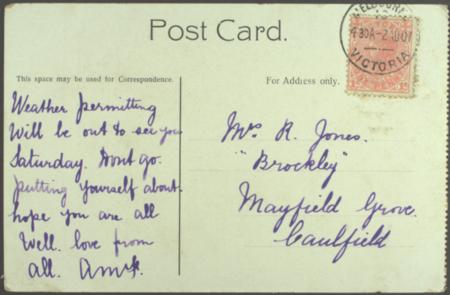 Post Card.
This space may be used for Correspondence.
For Address only.
MELBOURNE
4 30A - 2 AU 07
VICTORIA
Weather permitting
Will be out to see you
Saturday. Dont go
putting yourself about.
hope you are all
Well. love from
all.
Mrs R. Jones.
"Brockley"
Mayfield Grove.
Caulfield